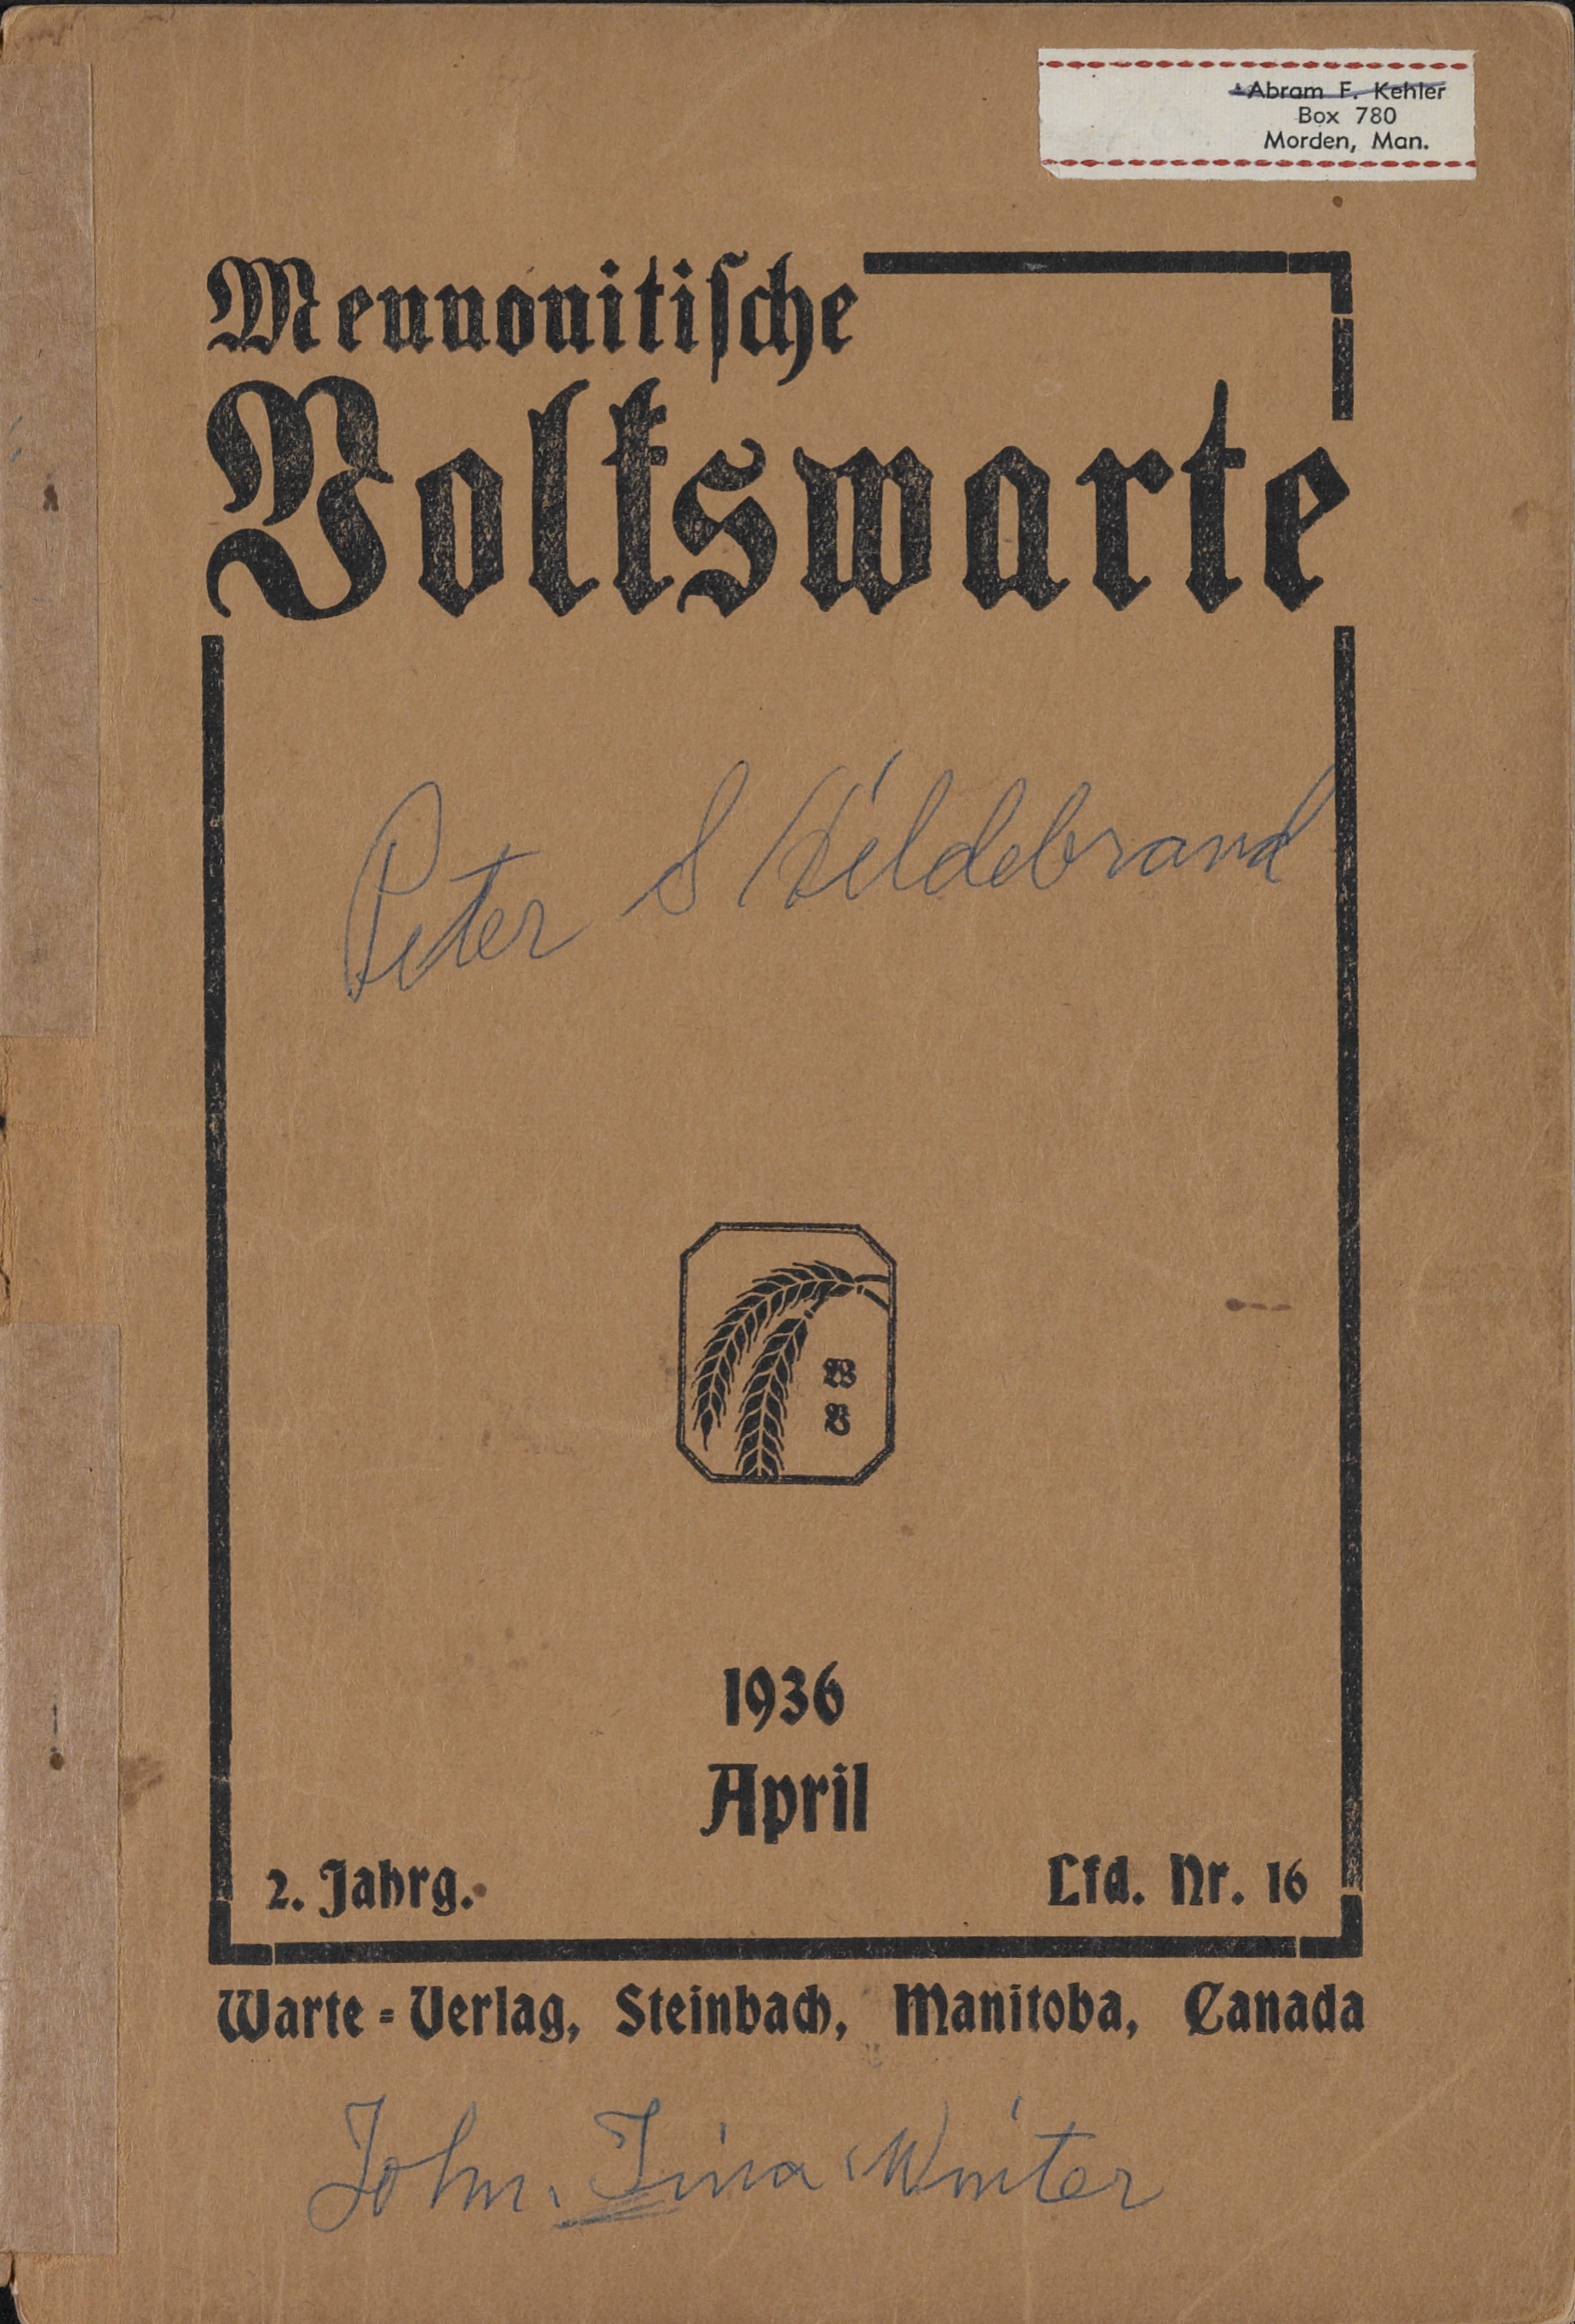 Abram F. Kehler
Box 780
Morden, Man.
Mennonitische
Volkswarte
Peter S Hildebrand
W
V
1936
April
2. Jahrg.
Lfd. Nr. 16
Warte=Verlag, Steinbach, Manitoba, Canada
John. Tina Winter